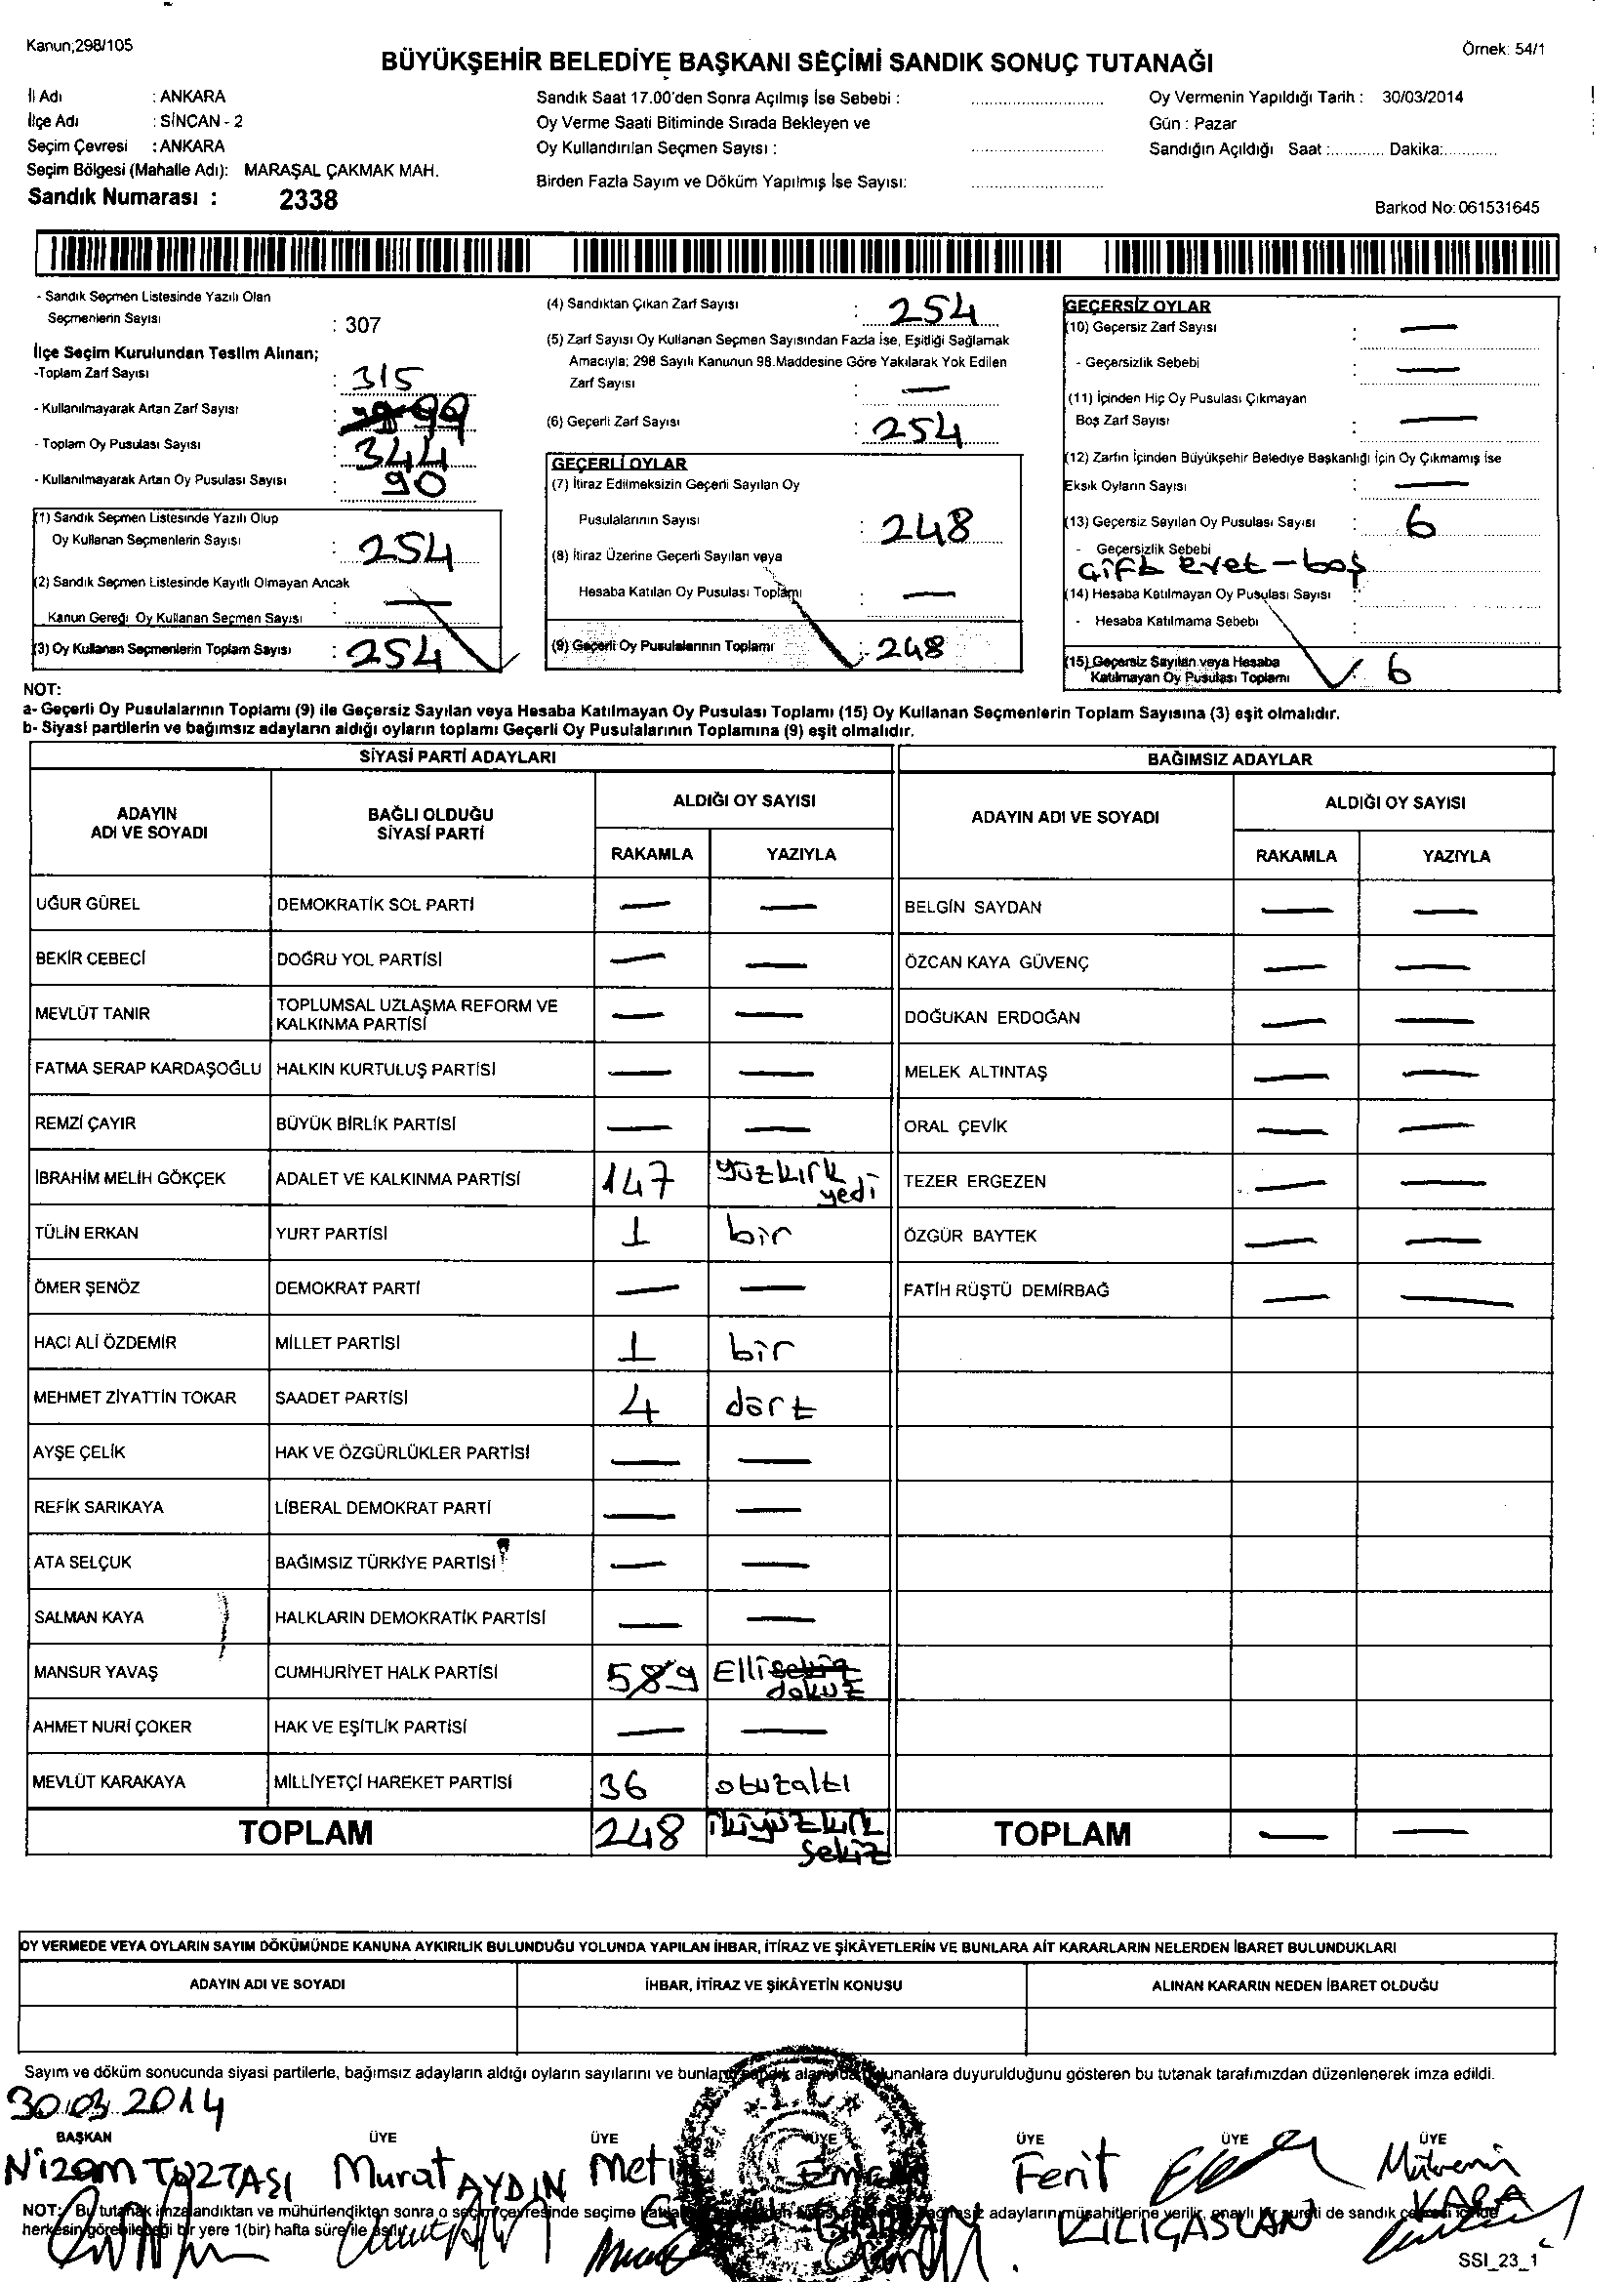 Kanun;298/105
Örnek: 54/1
BÜYÜKŞEHİR BELEDİYE BAŞKANI SEÇİMİ SANDIK SONUÇ TUTANAĞI
İl Adı : ANKARA
İlçe Adı : SİNCAN - 2
Seçim Çevresi : ANKARA
Seçim Bölgesi (Mahalle Adı): MARAŞAL ÇAKMAK MAH.
Sandık Numarası : 2338
Sandık Saat 17.00'den Sonra Açılmış İse Sebebi :
Oy Verme Saati Bitiminde Sırada Bekleyen ve
Oy Kullandırılan Seçmen Sayısı :
Birden Fazla Sayım ve Döküm Yapılmış İse Sayısı:
Oy Vermenin Yapıldığı Tarih : 30/03/2014
Gün : Pazar
Sandığın Açıldığı Saat :............ Dakika:............
Barkod No: 061531645
- Sandık Seçmen Listesinde Yazılı Olan
Seçmenlerin Sayısı : 307
İlçe Seçim Kurulundan Teslim Alınan;
-Toplam Zarf Sayısı : 315
- Kullanılmayarak Artan Zarf Sayısı : 99
- Toplam Oy Pusulası Sayısı : 344
- Kullanılmayarak Artan Oy Pusulası Sayısı : 90
(1) Sandık Seçmen Listesinde Yazılı Olup
Oy Kullanan Seçmenlerin Sayısı : 254
(2) Sandık Seçmen Listesinde Kayıtlı Olmayan Ancak
Kanun Gereği Oy Kullanan Seçmen Sayısı : —
(3) Oy Kullanan Seçmenlerin Toplam Sayısı : 254
(4) Sandıktan Çıkan Zarf Sayısı : 254
(5) Zarf Sayısı Oy Kullanan Seçmen Sayısından Fazla İse, Eşitliği Sağlamak
Amacıyla; 298 Sayılı Kanunun 98.Maddesine Göre Yakılarak Yok Edilen
Zarf Sayısı : —
(6) Geçerli Zarf Sayısı : 254
GEÇERLİ OYLAR
(7) İtiraz Edilmeksizin Geçerli Sayılan Oy
Pusulalarının Sayısı : 248
(8) İtiraz Üzerine Geçerli Sayılan veya
Hesaba Katılan Oy Pusulası Toplamı : —
(9) Geçerli Oy Pusulalarının Toplamı : 248
GEÇERSİZ OYLAR
(10) Geçersiz Zarf Sayısı : —
- Geçersizlik Sebebi : —
(11) İçinden Hiç Oy Pusulası Çıkmayan
Boş Zarf Sayısı : —
(12) Zarfın İçinden Büyükşehir Belediye Başkanlığı İçin Oy Çıkmamış İse
Eksik Oyların Sayısı : —
(13) Geçersiz Sayılan Oy Pusulası Sayısı : 6
- Geçersizlik Sebebi
Çift evet - boş
(14) Hesaba Katılmayan Oy Pusulası Sayısı :
- Hesaba Katılmama Sebebi :
(15) Geçersiz Sayılan veya Hesaba
Katılmayan Oy Pusulası Toplamı : 6
NOT:
a- Geçerli Oy Pusulalarının Toplamı (9) ile Geçersiz Sayılan veya Hesaba Katılmayan Oy Pusulası Toplamı (15) Oy Kullanan Seçmenlerin Toplam Sayısına (3) eşit olmalıdır.
b- Siyasi partilerin ve bağımsız adayların aldığı oyların toplamı Geçerli Oy Pusulalarının Toplamına (9) eşit olmalıdır.
SİYASİ PARTİ ADAYLARI
ADAYIN ADI VE SOYADI BAĞLI OLDUĞU SİYASİ PARTİ ALDIĞI OY SAYISI
RAKAMLA YAZIYLA
UĞUR GÜREL DEMOKRATİK SOL PARTİ — —
BEKİR CEBECİ DOĞRU YOL PARTİSİ — —
MEVLÜT TANIR TOPLUMSAL UZLAŞMA REFORM VE KALKINMA PARTİSİ — —
FATMA SERAP KARDAŞOĞLU HALKIN KURTULUŞ PARTİSİ — —
REMZİ ÇAYIR BÜYÜK BİRLİK PARTİSİ — —
İBRAHİM MELİH GÖKÇEK ADALET VE KALKINMA PARTİSİ 147 yüzkırk yedi
TÜLİN ERKAN YURT PARTİSİ 1 bir
ÖMER ŞENÖZ DEMOKRAT PARTİ — —
HACI ALİ ÖZDEMİR MİLLET PARTİSİ 1 bir
MEHMET ZİYATTİN TOKAR SAADET PARTİSİ 4 dört
AYŞE ÇELİK HAK VE ÖZGÜRLÜKLER PARTİSİ — —
REFİK SARIKAYA LİBERAL DEMOKRAT PARTİ — —
ATA SELÇUK BAĞIMSIZ TÜRKİYE PARTİSİ — —
SALMAN KAYA HALKLARIN DEMOKRATİK PARTİSİ — —
MANSUR YAVAŞ CUMHURİYET HALK PARTİSİ 589 Ellisekiz dokuz
AHMET NURİ ÇOKER HAK VE EŞİTLİK PARTİSİ — —
MEVLÜT KARAKAYA MİLLİYETÇİ HAREKET PARTİSİ 36 otuzaltı
TOPLAM 248 ikiyüzkırk sekiz
BAĞIMSIZ ADAYLAR
ADAYIN ADI VE SOYADI ALDIĞI OY SAYISI
RAKAMLA YAZIYLA
BELGİN SAYDAN — —
ÖZCAN KAYA GÜVENÇ — —
DOĞUKAN ERDOĞAN — —
MELEK ALTINTAŞ — —
ORAL ÇEVİK — —
TEZER ERGEZEN — —
ÖZGÜR BAYTEK — —
FATİH RÜŞTÜ DEMİRBAĞ — —
TOPLAM — —
OY VERMEDE VEYA OYLARIN SAYIM DÖKÜMÜNDE KANUNA AYKIRILIK BULUNDUĞU YOLUNDA YAPILAN İHBAR, İTİRAZ VE ŞİKÂYETLERİN VE BUNLARA AİT KARARLARIN NELERDEN İBARET BULUNDUKLARI
ADAYIN ADI VE SOYADI İHBAR, İTİRAZ VE ŞİKÂYETİN KONUSU ALINAN KARARIN NEDEN İBARET OLDUĞU
Sayım ve döküm sonucunda siyasi partilerle, bağımsız adayların aldığı oyların sayılarını ve duyurulduğunu gösteren bu tutanak tarafımızdan düzenlenerek imza edildi.
30.03.2014
BAŞKAN ÜYE ÜYE ÜYE ÜYE ÜYE ÜYE
Nizam TOZTAŞI Murat AYDIN Ferit KILIÇASLAN KARA
T.C.
NOT: Bu tutanak imzalandıktan ve mühürlendikten sonra o seçim çevresinde seçime adayların müşahitlerine verilir, onaylı bir sureti de sandık
herkesin görebileceği bir yere 1(bir) hafta süre ile asılır.
SSI_23_1